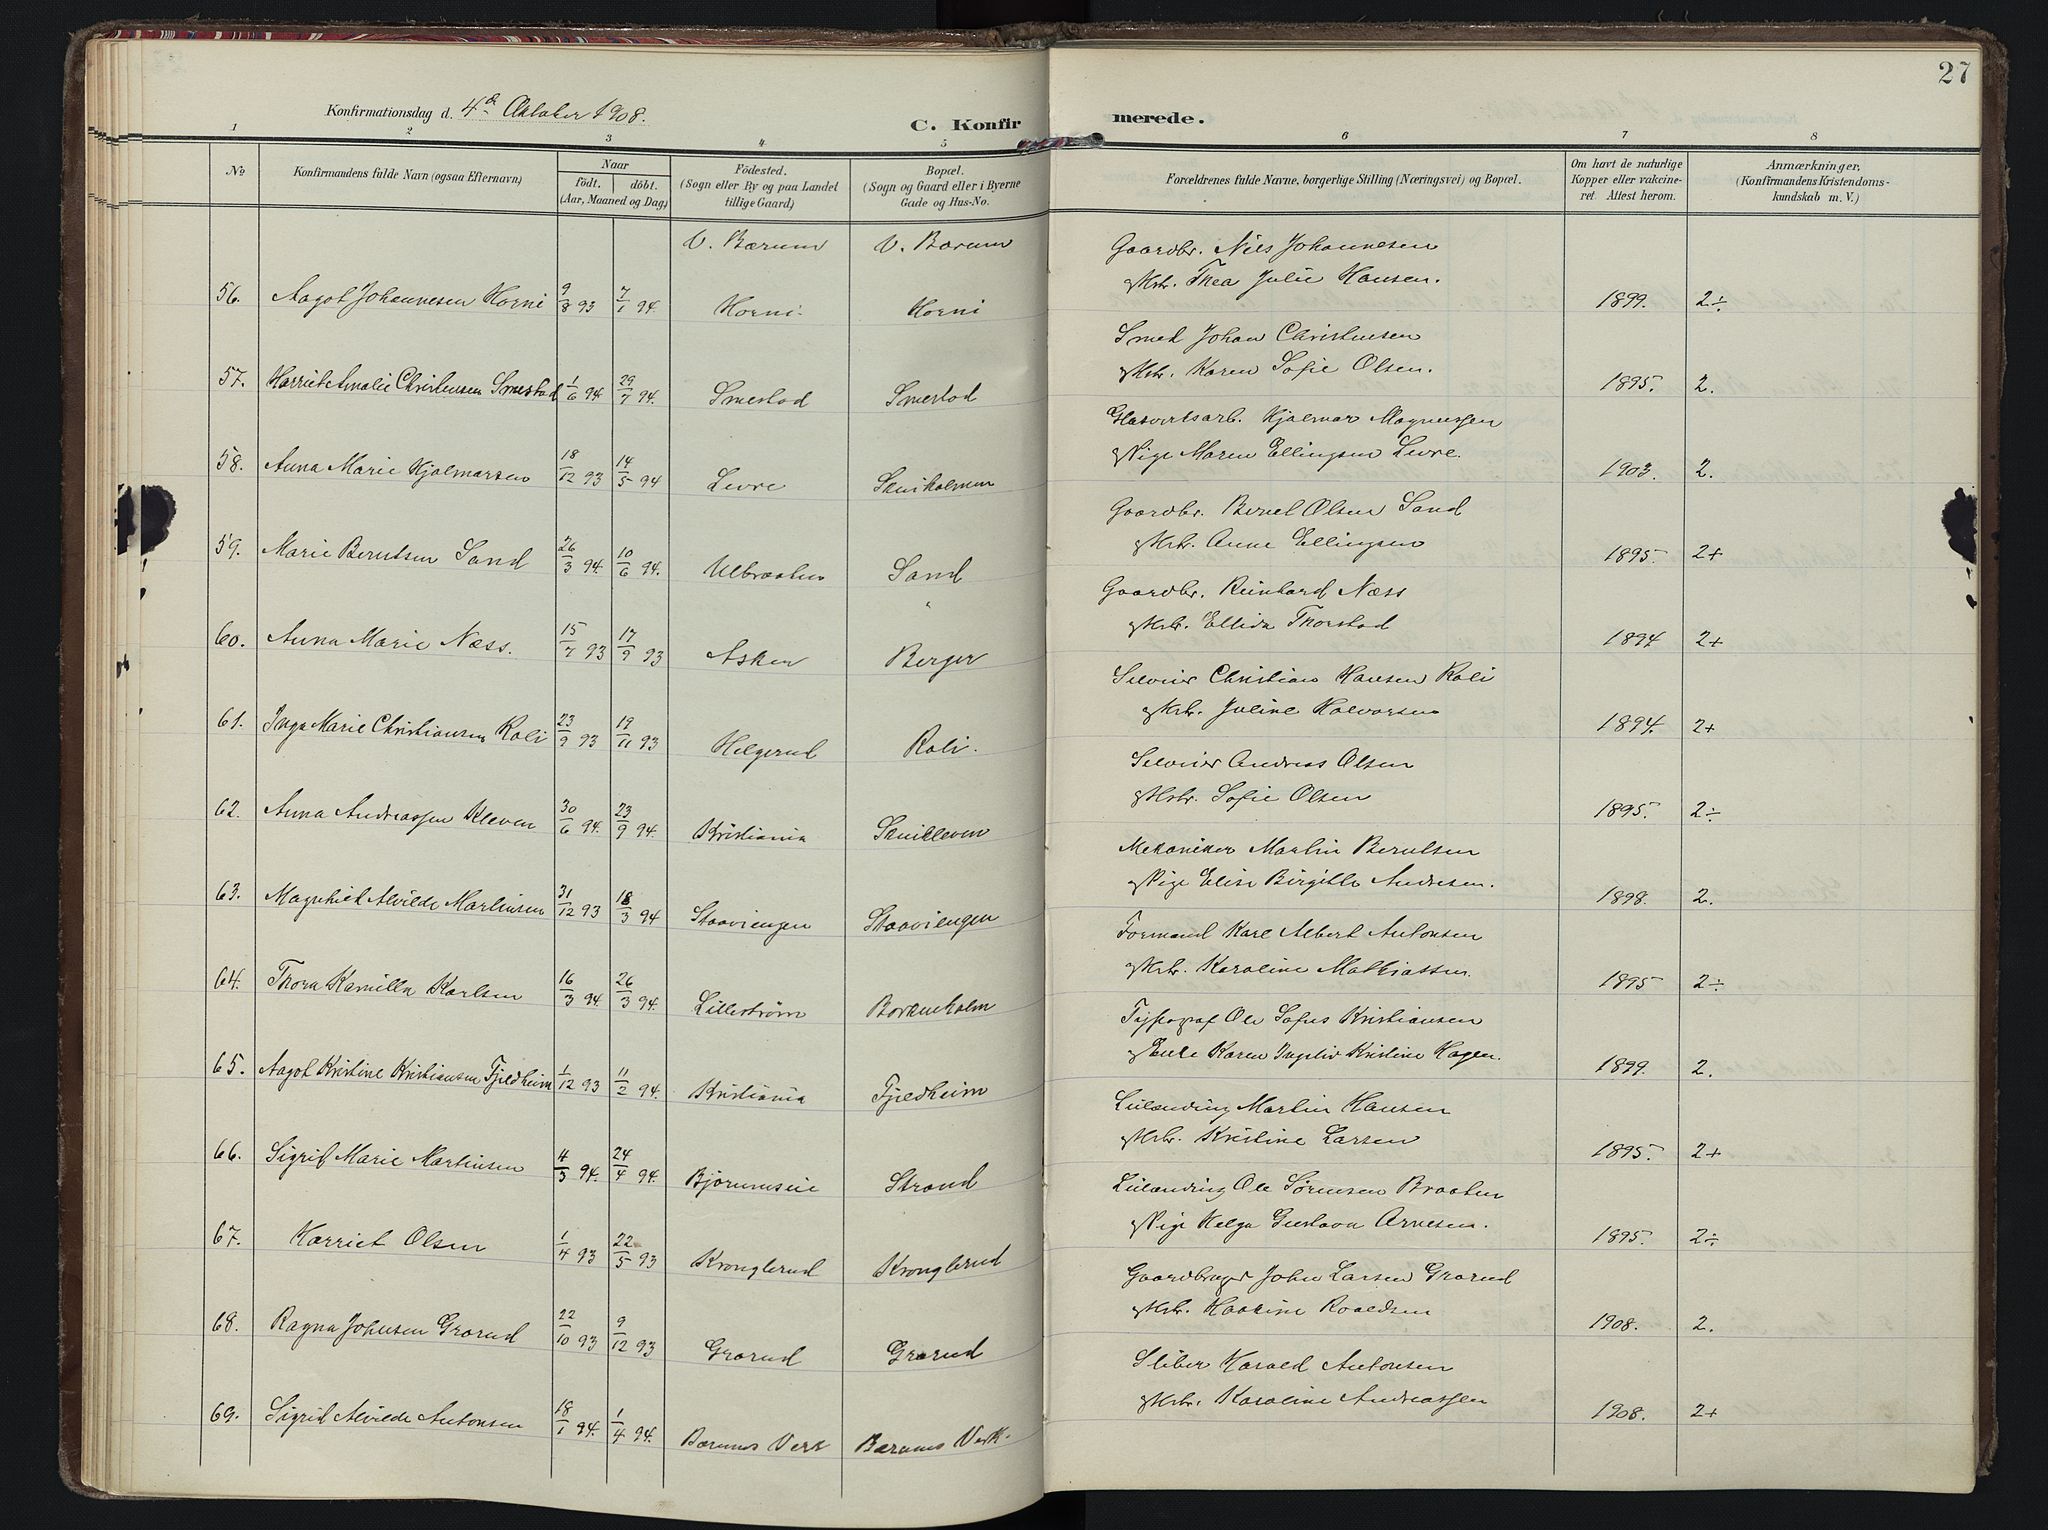 27
Konfirmationsdag d. 4de Oktober 1908.
C. Konfirmerede.
1 2 3 4 5 6 7 8
No
Konfirmandens fulde Navn (ogsaa Efternavn)
Naar
födt. döbt.
(Aar, Maaned og Dag)
Födested.
(Sogn eller By og paa Landet
tillige Gaard)
Bopæl.
(Sogn og Gaard eller i Byerne
Gade og Hus-No.
Forældrenes fulde Navne, borgerlige Stilling (Næringsvei) og Bopæl.
Om havt de naturlige
Kopper eller vakcine-
ret. Attest herom.
Anmærkninger,
(Konfirmandens Kristendoms-
kundskab m. V.)
V. Bærum V. Bærum Gaardbr. Nils Johannesen
56. Aagot Johannesen Horni 9/8 93 7/1 94. Horni. Horni
og Hstr. Thea Julie Hansen. 1899. 2÷
Smed Johan Christensen
57. Harriet Amalie Christensen Smestad 1/6 94 29/7 94. Smestad Smestad
og Hstr. Karen Sofie Olsen. 1895. 2.
Glasverksarb. Hjalmar Magnussen
58. Anna Marie Hjalmarsen 18/12 93 14/5 94 Levre Skuiholmen
og Pige Maren Ellingsen Levre. 1903. 2.
Gaardbr. Bernt Olsen Sand
59. Marie Berntsen Sand 26/3 94. 10/6 94. Ulbraaten Sand
og Hstr. Anne Ellingsen 1895. 2+
Gaardbr. Reinhard Næss
60. Anna Marie Næss. 15/7 93 17/9 93 Asker Berger
og Hstr. Ellida Thorstad 1894 2+
Selveier Christian Hansen Kali
61. Inga Marie Christiansen Kali 23/9 93 19/11 93 Helgerud Kali.
og Hstr. Juline Halvorsen 1894. 2+
Selveier Andreas Olsen
62. Anna Andreassen Kleven 30/6 94. 23/9 94. Kristiania Skuikleven
og Hstr. Sofie Olsen 1895. 2÷
Mekaniker Martin Berntsen
63. Magnhild Alvilde Martinsen 31/12 93 18/3 94 Staaviengen Staaviengen
og Pige Elise Birgitte Andresen. 1898. 2.
Formand Karl Albert Antonsen
64. Thora Kamilla Karlsen 16/3 94. 26/3 94. Lillestrøm Borkenholm
og Hstr. Karoline Mathiassen. 1895 2÷
Typograf Ole Sofus Kristiansen
65. Aagot Kristine Kristiansen Fjeldheim 1/12 93 11/2 94. Kristiania Fjeldheim
og Enke Karen Ingeliv Kristine Hagen. 1899. 2.
Leilænding Martin Hansen
66. Sigrid Marie Martinsen 4/3 94. 24/4 94. Bjørumseie Strand
og Hstr. Kristine Larsen 1895. 2+
Leilænding Ole Sørensen Braaten
67. Harriet Olsen 1/4 93 22/5 93 Kronglerud Kronglerud
og Pige Helga Gustava Arnesen. 1895. 2÷
Gaardbruger John Larsen Grorud
68. Ragna Johnsen Grorud 22/10 93 9/12 93 Grorud Grorud
og Hstr. Haakine Roaldsen 1908. 2.
Sliber Harald Antonsen
69. Sigrid Alvilde Antonsen 18/1 94. 1/4 94. Bærums Verk Bærums Verk.
og Hstr. Karoline Andreassen 1908. 2+